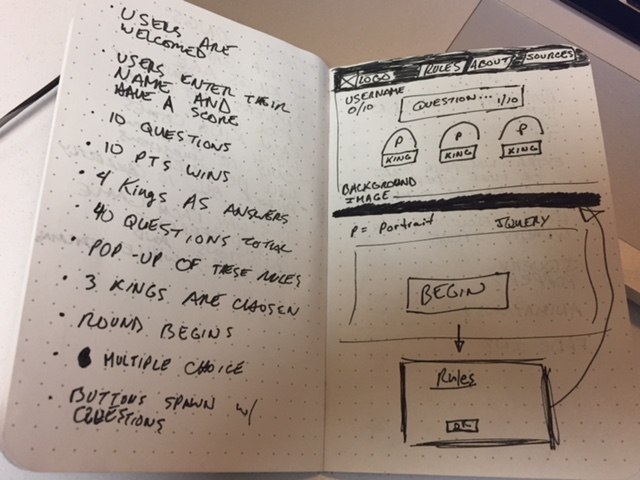 • USERS ARE
WELCOMED
• USERS ENTER THEIR
NAME AND
HAVE A SCORE
• 10 QUESTIONS
• 10 PTS WINS
• 4 KINGS AS ANSWERS
• 40 QUESTIONS TOTAL
• POP-UP OF THESE RULES
• 3 KINGS ARE CHOSEN
• ROUND BEGINS
• MULTIPLE CHOICE
• BUTTONS SPAWN W/
QUESTIONS
LOGO RULES ABOUT SOURCES
USERNAME
0/10
QUESTION... 1/10
P P P
KING KING KING
BACKGROUND
IMAGE
P = Portrait JQUERY
BEGIN
Rules
OK